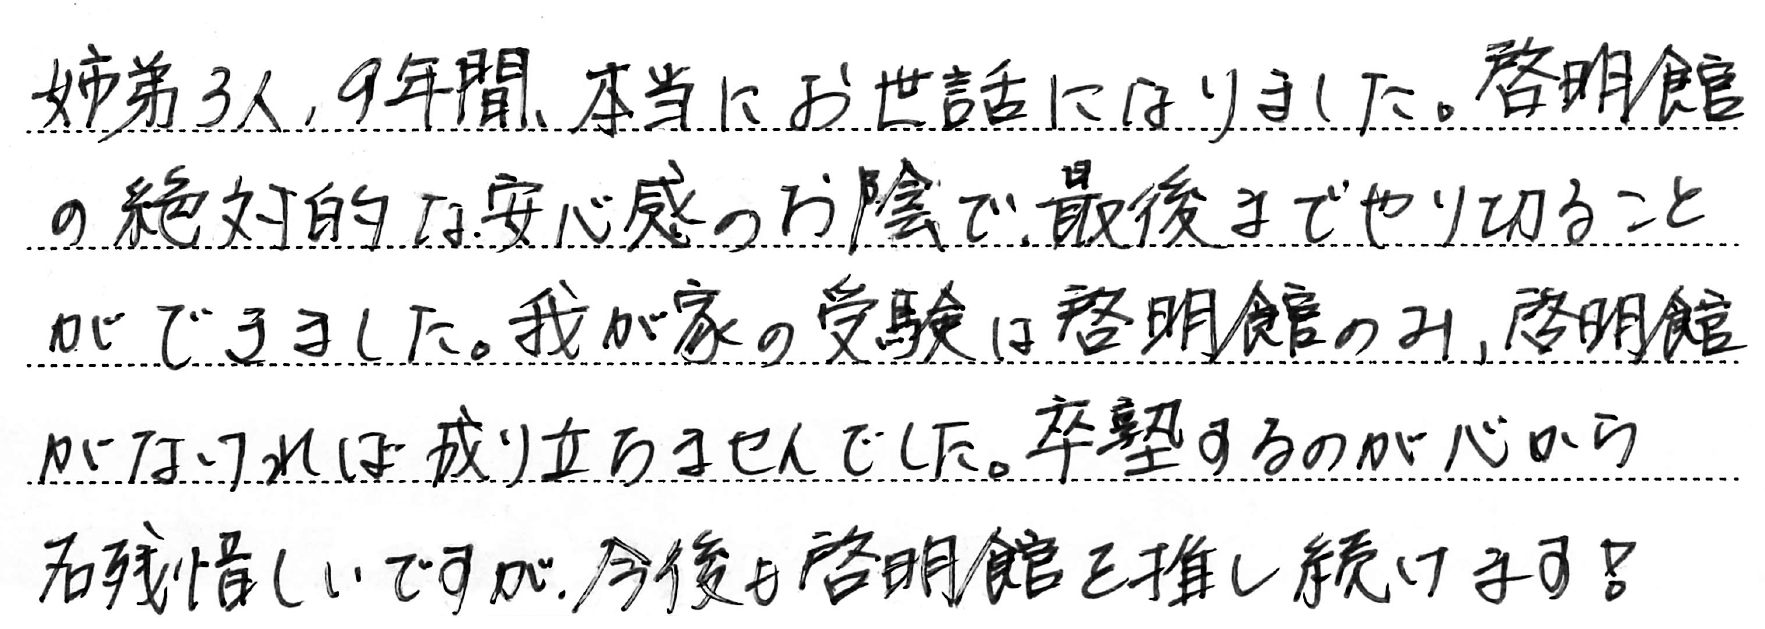 姉弟3人,9年間、本当にお世話になりました。啓明館
の絶対的な安心感のお陰で、最後までやり切ること
ができました。我が家の受験は啓明館のみ,啓明館
がなければ成り立ちませんでした。卒塾するのが心から
名残惜しいですが、今後も啓明館を推し続けます!